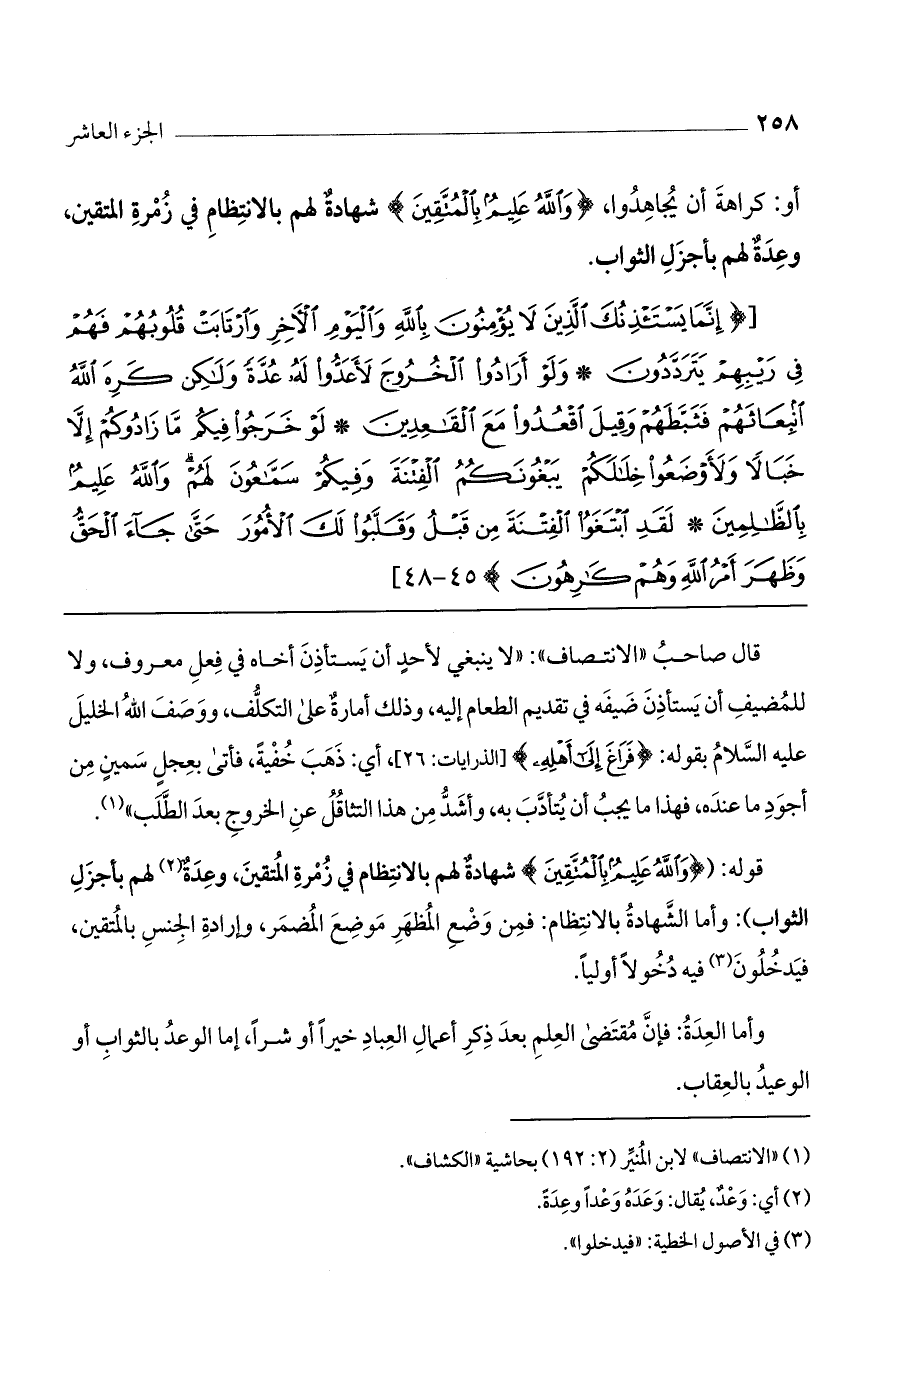 ٢٥٨ الجزء العاشر
أو: كراهةَ أن يُجاهِدُوا، ﴿وَٱللَّهُ عَلِيمٌۢ بِٱلْمُتَّقِينَ﴾ شهادةٌ لهم بالانتِظامِ في زُمْرةِ المتقين،
وعِدَةٌ لهم بأجزَلِ الثواب.
[﴿إِنَّمَا يَسْتَـْٔذِنُكَ ٱلَّذِينَ لَا يُؤْمِنُونَ بِٱللَّهِ وَٱلْيَوْمِ ٱلْآخِرِ وَٱرْتَابَتْ قُلُوبُهُمْ فَهُمْ
فِى رَيْبِهِمْ يَتَرَدَّدُونَ * وَلَوْ أَرَادُوا۟ ٱلْخُرُوجَ لَأَعَدُّوا۟ لَهُۥ عُدَّةً وَلَـٰكِن كَرِهَ ٱللَّهُ
ٱنۢبِعَاثَهُمْ فَثَبَّطَهُمْ وَقِيلَ ٱقْعُدُوا۟ مَعَ ٱلْقَـٰعِدِينَ * لَوْ خَرَجُوا۟ فِيكُم مَّا زَادُوكُمْ إِلَّا
خَبَالًا وَلَأَوْضَعُوا۟ خِلَـٰلَكُمْ يَبْغُونَكُمُ ٱلْفِتْنَةَ وَفِيكُمْ سَمَّـٰعُونَ لَهُمْ ۗ وَٱللَّهُ عَلِيمٌۢ
بِٱلظَّـٰلِمِينَ * لَقَدِ ٱبْتَغَوُا۟ ٱلْفِتْنَةَ مِن قَبْلُ وَقَلَّبُوا۟ لَكَ ٱلْأُمُورَ حَتَّىٰ جَآءَ ٱلْحَقُّ
وَظَهَرَ أَمْرُ ٱللَّهِ وَهُمْ كَـٰرِهُونَ﴾ ٤٥-٤٨]
قال صاحبُ «الانتصاف»: «لا ينبغي لأحدٍ أن يَستأذِنَ أخاه في فِعلِ معروف، ولا
للمُضيفِ أن يَستأذِنَ ضَيفَه في تقديم الطعام إليه، وذلك أمارةٌ على التكلُّف، ووَصَفَ اللهُ الخليلَ
عليه السَّلامُ بقوله: ﴿فَرَاغَ إِلَىٰٓ أَهْلِهِۦ﴾ [الذرايات: ٢٦]، أي: ذَهَبَ خُفْيةً، فأتى بعِجلٍ سَمينٍ مِن
أجوَدِ ما عندَه، فهذا ما يجبُ أن يُتأدَّبَ به، وأشَدُّ مِن هذا التثاقُلُ عنِ الخروجِ بعدَ الطَّلَب»(١).
قوله: (﴿وَٱللَّهُ عَلِيمٌۢ بِٱلْمُتَّقِينَ﴾ شهادةٌ لهم بالانتِظام في زُمْرةِ المُتقينَ، وعِدَةٌ(٢) لهم بأجزَلِ
الثواب): وأما الشَّهادةُ بالانتِظام: فمِن وَضْعِ المُظهَرِ مَوضِعَ المُضمَر، وإرادةِ الجِنسِ بالمُتقين،
فيَدخُلُونَ(٣) فيه دُخُولاً أولياً.
وأما العِدَةُ: فإنَّ مُقتَضى العِلمِ بعدَ ذِكرِ أعمالِ العِبادِ خيراً أو شراً، إما الوعدُ بالثوابِ أو
الوعيدُ بالعِقاب.
(١) «الانتصاف» لابن المُنيِّر (٢: ١٩٢) بحاشية «الكشاف».
(٢) أي: وَعْدٌ، يُقال: وَعَدَهُ وَعْداً وعِدَةً.
(٣) في الأصول الخطية: «فيدخلوا».